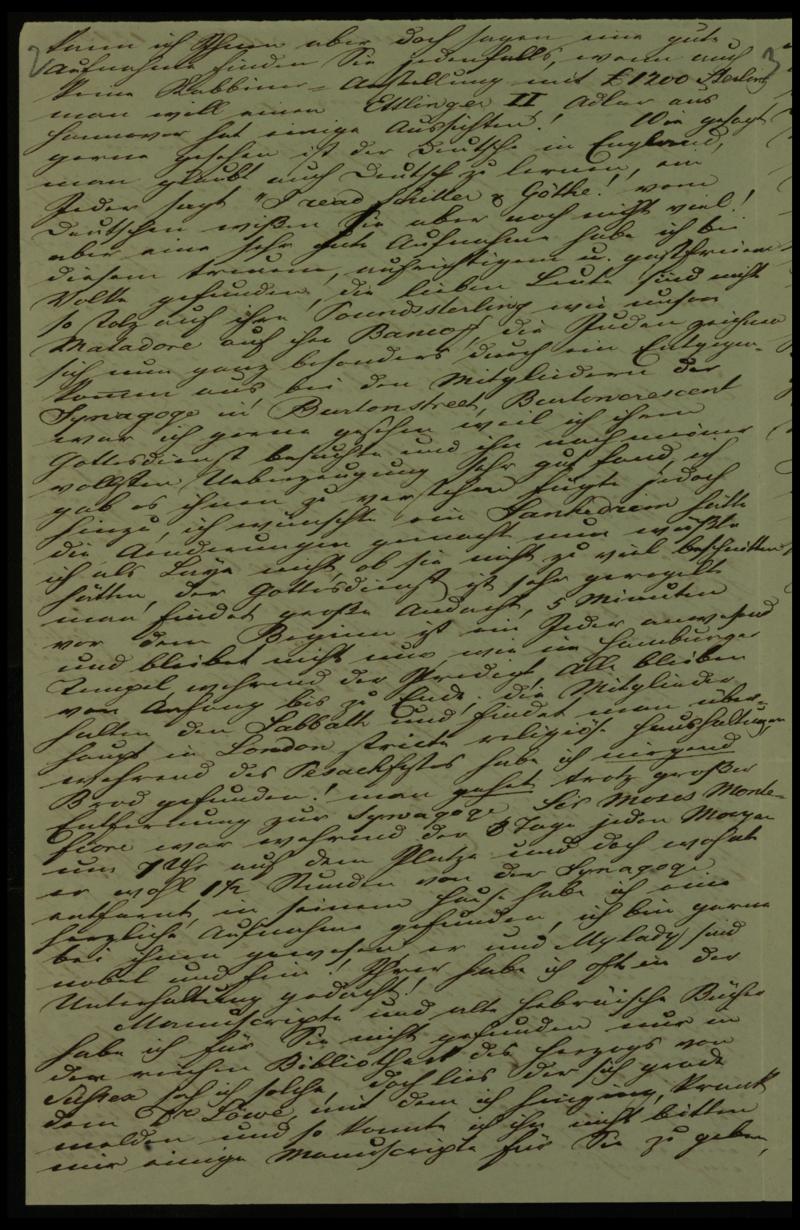 2 kann ich Ihnen aber doch sagen eine gute 3
Aufnahme finden Sie jedenfalls, wenn auch
keine Rabbiner-Anstellung mit £1200 Sterling
man will einen Ettlinger II Adler aus
Hannover hat einige Aussichten! Wie gesagt
gerne gesehen ist der Deutsche in England,
man glaubt auch Deutsch zu lernen, ein
Jeder sagt "I read Schiller & Göthe! vom
Deutschen wissen Sie aber noch nicht viel!
aber eine sehr gute Aufnahme habe ich bei
diesem treuen, aufrichtigen u. gastfreien
Volke gefunden, die lieben Leute sind nicht
so stolz auf ihre Poundssterling wie unsere
Matadore auf ihre Banco, die Juden zeichnen
sich nun ganz besonders durch ein Entgegen-
kommen aus bei den Mitgliedern der
Synagoge in Burtonstreet, Burtoncrescent
war ich gerne gesehen weil ich ihren
Gottesdienst besuchte und ihn nach meiner
vollsten Ueberzeugung sehr gut fand, ich
gab es ihnen zu verstehen fügte jedoch
hinzu, ich wünschte ein Sanhedrien hätte
die Aenderungen gemacht nun wüßte
ich als Laye nicht ob sie nicht zu viel beschnitten
hätten, der Gottesdienst ist sehr geregelt
man findet große Andacht, 5 Minuten
vor dem Beginn ist ein Jeder anwesend
und bleibet nicht nur wie im Hamburger
Tempel während der Predigt Alle bleiben
von Anfang bis zu Ende. die Mitglieder
halten den Sabbath und findet man über-
haupt in London stricte religiöse Haushaltungen
während des Pesachfestes habe ich nirgend
Brod gefunden! man gehet trotz großer
Entfernung zur Synagoge Sir Moses Monte-
fiore war während der 8 Tage jeden Morgen
um 7 Uhr auf dem Platze und doch wohnt
er wohl 1½ Stunden von der Synagoge
entfernt, in seinem Hause habe ich eine
herzliche Aufnahme gefunden, ich bin gerne
bei ihnen gewesen, er und Mylady sind
nobel und fein! Ihrer habe ich oft in der
Unterhaltung gedacht!
Manuscripte und alte hebräische Bücher
habe ich für Sie nicht gefunden nur in
der reichen Bibliothek des Herzogs von
Sussex sah ich solche, doch lies der sich grade
dem Dr Löwe, mit dem ich hinging, krank
melden und so konnte ich ihn nicht bitten
mir einige Manuscripte für Sie zu geben,